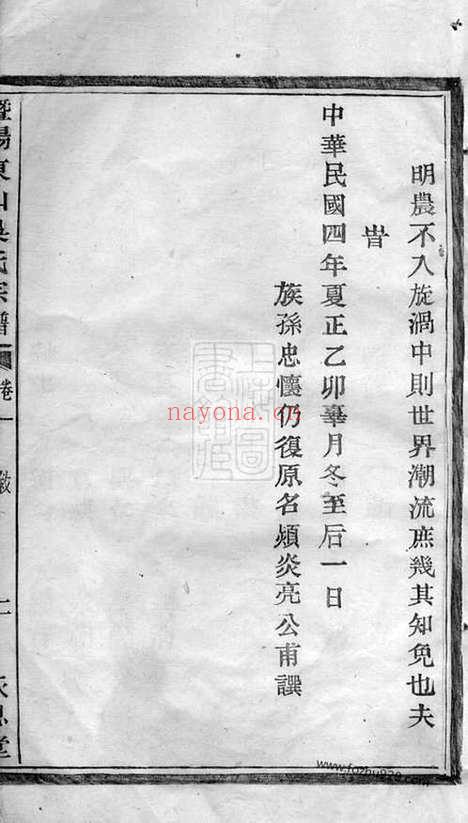 明農不入旋渦中則世界潮流庶幾其知免也夫
旹
中華民國四年夏正乙卯辜月冬至后一日
族孫忠懷仍復原名熲炎亮公甫譔
暨陽東山吳氏宗譜 卷一 敘
nayona.cn
www.fozhu920.com